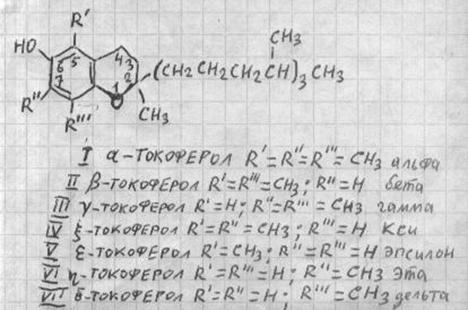 R'
HO
5
6
7
R''
R'''
4
3
2
1
CH₃
(CH₂CH₂CH₂CH)₃CH₃
CH₃
I α-ТОКОФЕРОЛ R'=R''=R'''=CH₃ альфа
II β-ТОКОФЕРОЛ R'=R'''=CH₃; R''=H бета
III γ-ТОКОФЕРОЛ R'=H; R''=R'''=CH₃ гамма
IV ξ-ТОКОФЕРОЛ R'=R''=CH₃; R'''=H Кси
V ε-ТОКОФЕРОЛ R'=CH₃; R''=R'''=H ЭПСИЛОН
VI η-ТОКОФЕРОЛ R'=R'''=H; R''=CH₃ Эта
VII δ-ТОКОФЕРОЛ R'=R''=H; R'''=CH₃ дельта